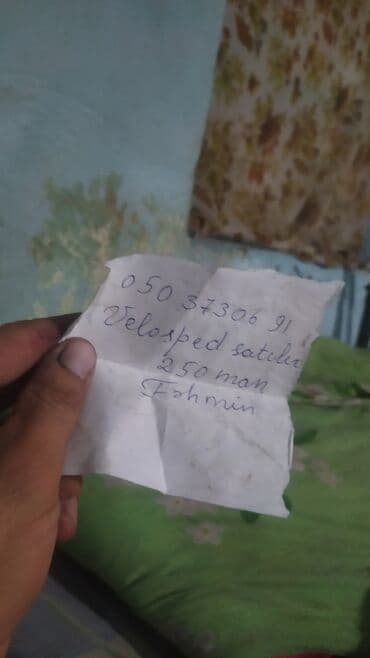 050 3730691
Velosped satılır
250 man
Fəhmin